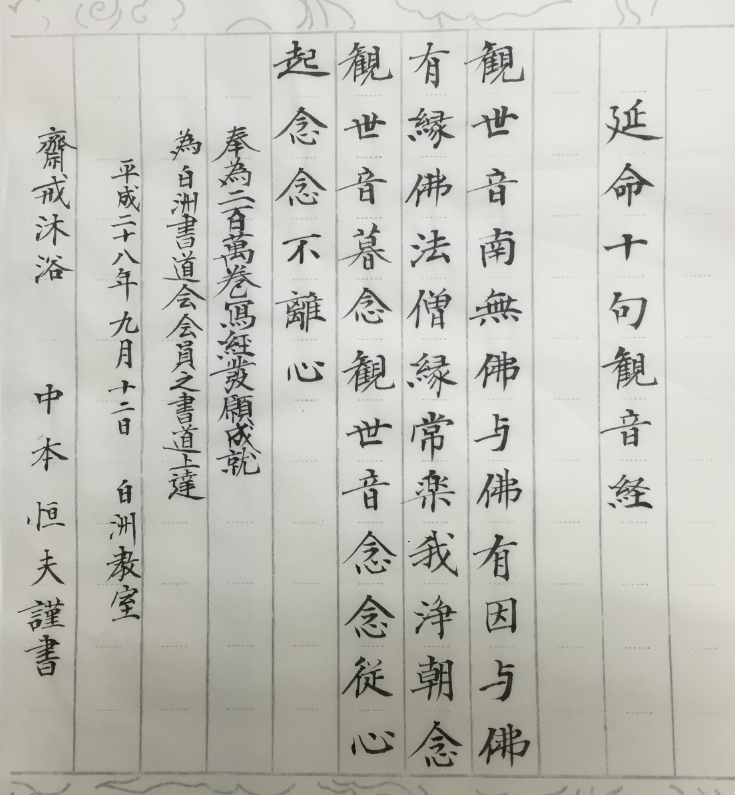 延命十句観音経
観世音南無佛与佛有因与佛
有縁佛法僧縁常楽我浄朝念
観世音暮念観世音念念従心
起念念不離心
奉為二百萬巻寫経發願成就
為白洲書道会会員之書道上達
平成二十八年九月十二日 白洲教室
齋戒沐浴 中本恒夫謹書